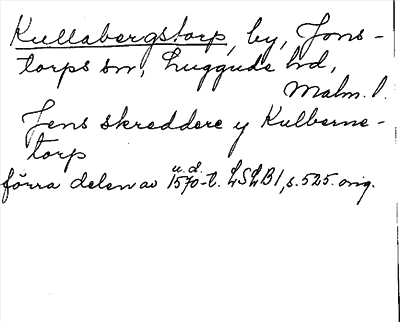 Kullabergstorp, by, Jons-
torps sn, Luggude hd,
Malm. l.
Jens skreddere y Kulberne-
torp
u.d.
förra delen av 1570-t. LSLB1, s. 525. orig.